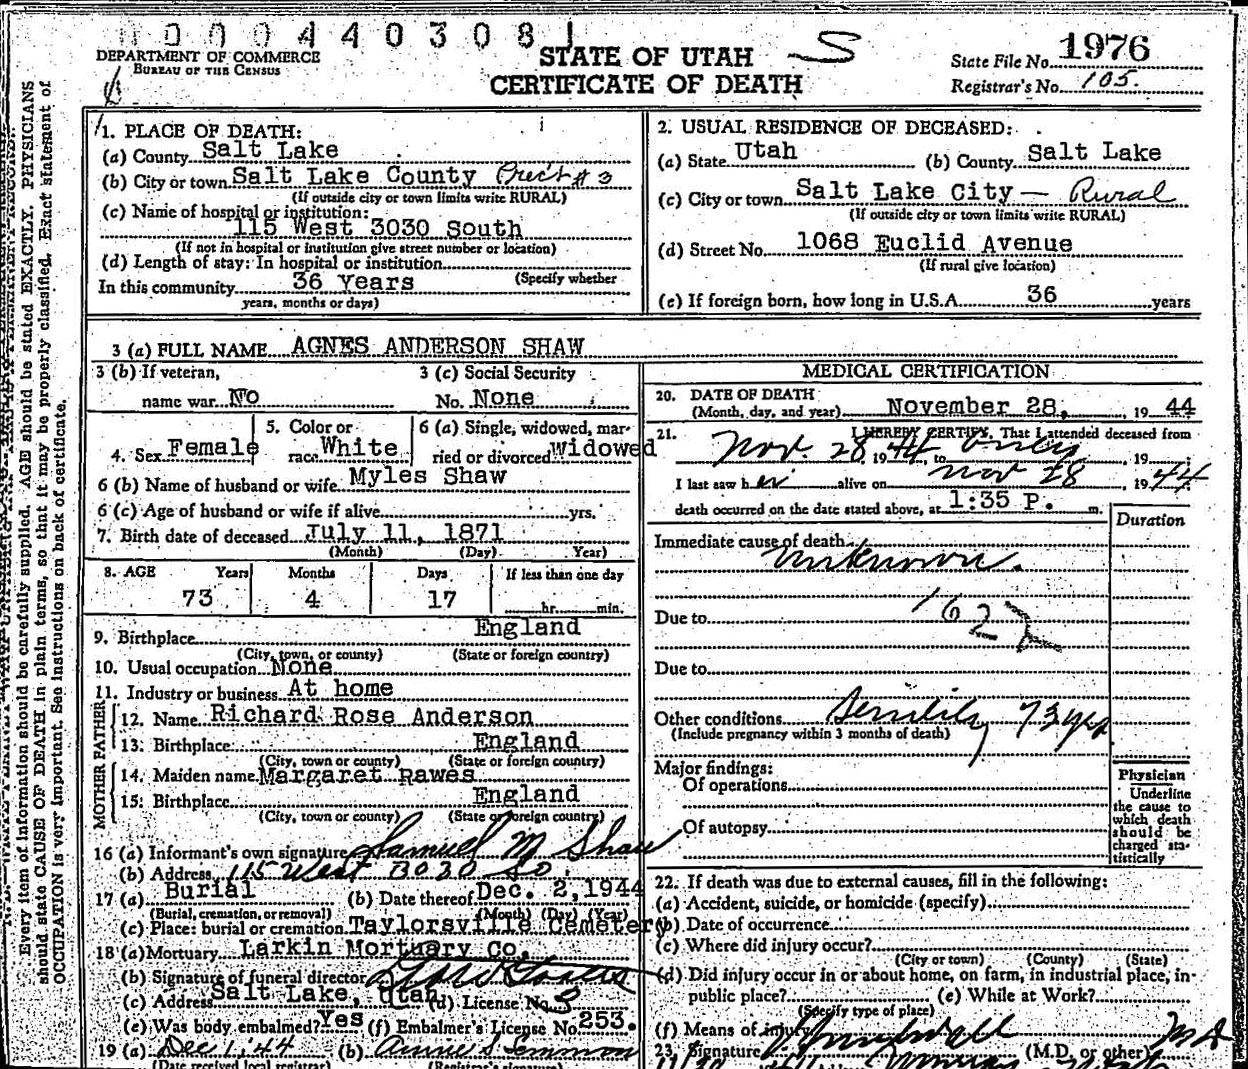 0004403081
DEPARTMENT OF COMMERCE
BUREAU OF THE CENSUS
STATE OF UTAH
CERTIFICATE OF DEATH
S
State File No. 1976
Registrar's No. 105.
Every item of information should be carefully supplied. AGE should be stated EXACTLY. PHYSICIANS
should state CAUSE OF DEATH in plain terms, so that it may be properly classified. Exact statement of
OCCUPATION is very important. See instructions on back of certificate.
1. PLACE OF DEATH:
(a) County Salt Lake
(b) City or town Salt Lake County Prect #3
(If outside city or town limits write RURAL)
(c) Name of hospital or institution:
115 West 3030 South
(If not in hospital or institution give street number or location)
(d) Length of stay: In hospital or institution
(Specify whether
In this community 36 Years
years, months or days)
2. USUAL RESIDENCE OF DECEASED:
(a) State Utah (b) County Salt Lake
(c) City or town Salt Lake City — Rural
(If outside city or town limits write RURAL)
(d) Street No. 1068 Euclid Avenue
(If rural give location)
(e) If foreign born, how long in U.S.A. 36 years
3 (a) FULL NAME AGNES ANDERSON SHAW
3 (b) If veteran,
name war No
3 (c) Social Security
No. None
4. Sex Female
5. Color or
race White
6 (a) Single, widowed, mar-
ried or divorced Widowed
6 (b) Name of husband or wife Myles Shaw
6 (c) Age of husband or wife if alive yrs.
7. Birth date of deceased July 11, 1871
(Month) (Day) Year)
8. AGE Years Months Days If less than one day
73 4 17 hr. min.
9. Birthplace England
(City, town, or county) (State or foreign country)
10. Usual occupation None
11. Industry or business At home
FATHER
12. Name Richard Rose Anderson
13. Birthplace England
(City, town or county) (State or foreign country)
MOTHER
14. Maiden name Margaret Rawes
15. Birthplace England
(City, town or county) (State or foreign country)
16 (a) Informant's own signature Samuel M Shaw
(b) Address 115 West 3030 So.
17 (a) Burial (b) Date thereof Dec. 2, 1944
(Burial, cremation, or removal) (Month) (Day) (Year)
(c) Place: burial or cremation Taylorsville Cemetery
18 (a) Mortuary Larkin Mortuary Co.
(b) Signature of funeral director
(c) Address Salt Lake, Utah (d) License No. 3
(e) Was body embalmed? Yes (f) Embalmer's License No. 253.
19 (a) Dec 1, 44 (b) Annie S Lemmon
(Date received local registrar) (Registrar's signature)
MEDICAL CERTIFICATION
20. DATE OF DEATH
(Month, day, and year) November 28, 19 44
21. I HEREBY CERTIFY, That I attended deceased from
Nov. 28, 19 44 to only, 19
I last saw her alive on Nov 28, 19 44
death occurred on the date stated above, at 1:35 P. m.
Duration
Immediate cause of death
Unknown.
Due to 162 2
Due to
Other conditions Senility 73 yrs
(Include pregnancy within 3 months of death)
Major findings:
Of operations
Of autopsy
Physician
Underline
the cause to
which death
should be
charged sta-
tistically
22. If death was due to external causes, fill in the following:
(a) Accident, suicide, or homicide (specify)
(b) Date of occurrence
(c) Where did injury occur?
(City or town) (County) (State)
(d) Did injury occur in or about home, on farm, in industrial place, in-
public place? (e) While at Work?
(Specify type of place)
(f) Means of injury
23. Signature (M.D. or other) M D